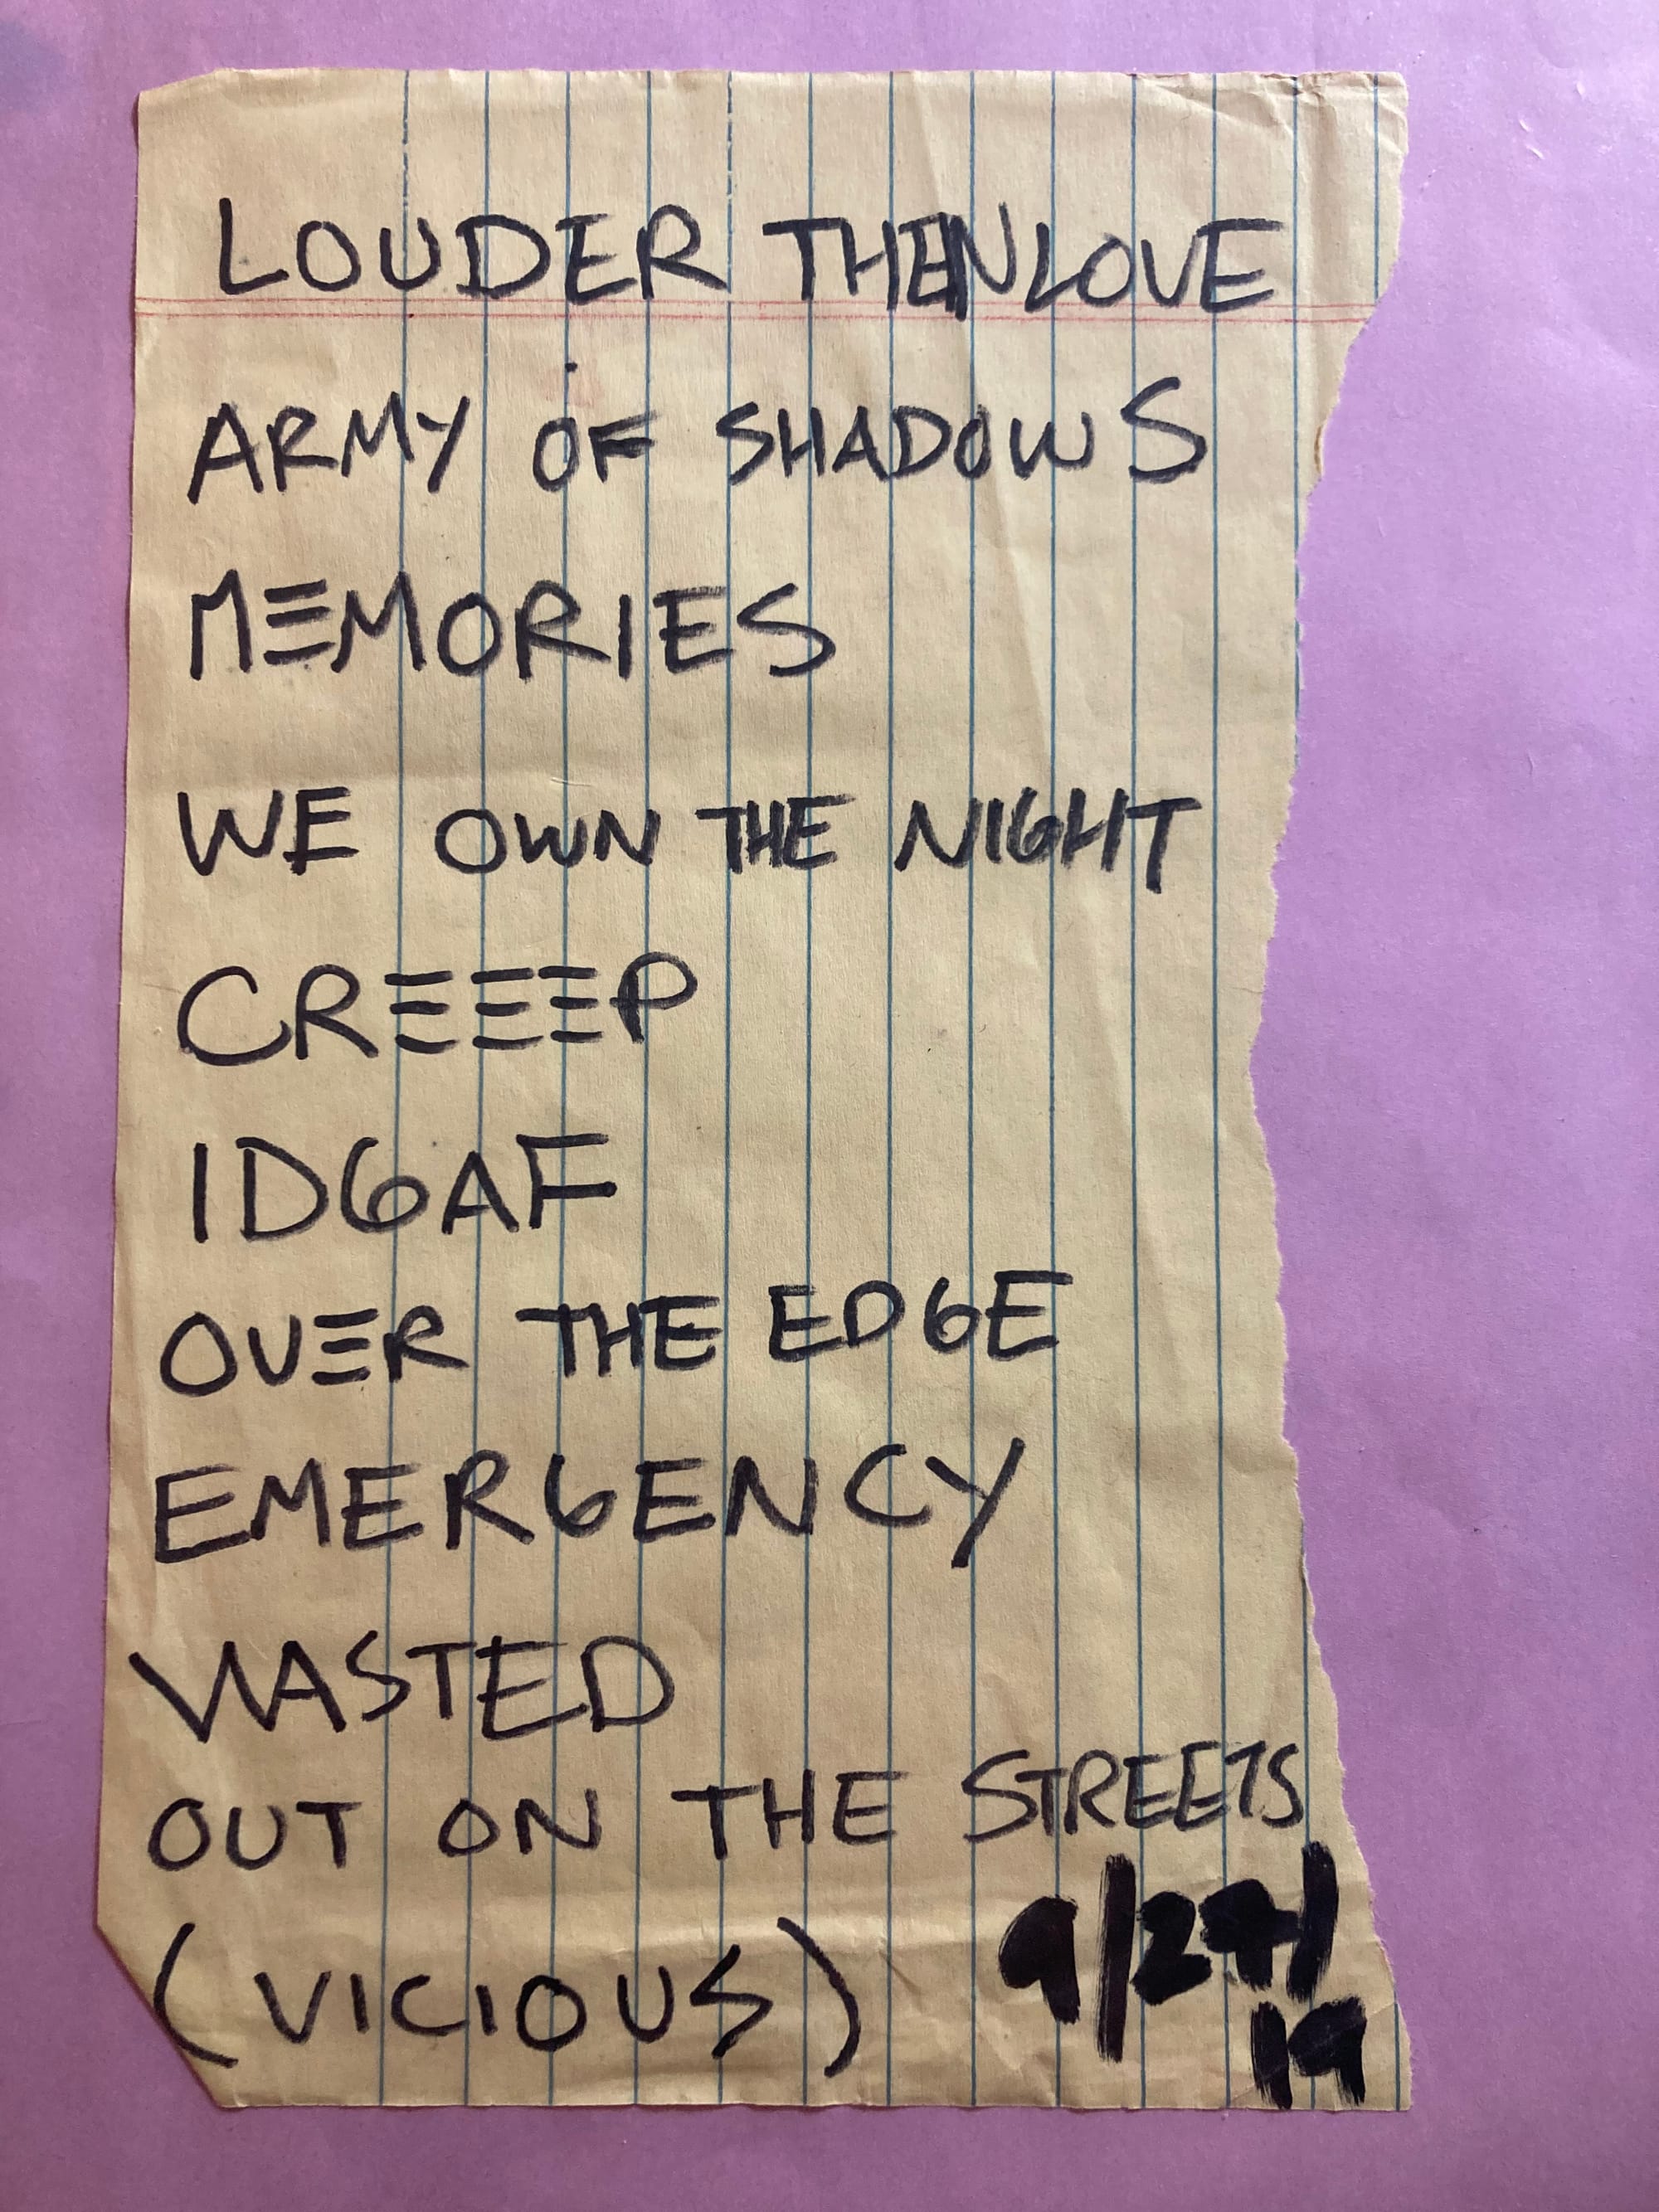 LOUDER THEN LOVE
ARMY OF SHADOWS
MEMORIES
WE OWN THE NIGHT
CREEEP
IDGAF
OVER THE EDGE
EMERGENCY
WASTED
OUT ON THE STREETS
(VICIOUS)
9/27/
19